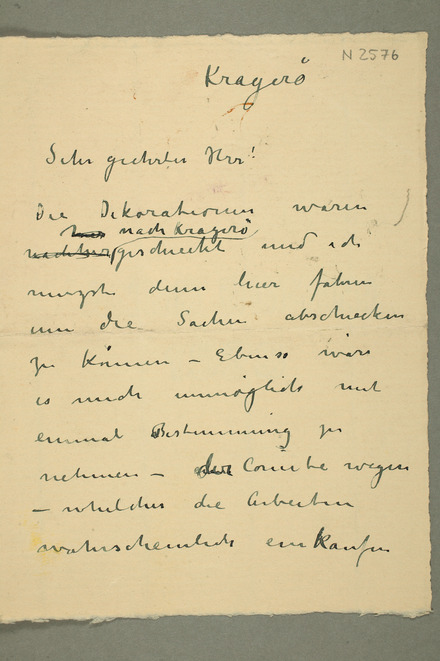 N 2576
Kragerö
Sehr geehrter Herr!
Die Dekorationen waren
nach Kragerö
geschickt und ich
muszte dann hier fahren
um die Sachen abschicken
zu können – Ebenso wäre
es mich unmöglich mit
einmal Bestimmung zu
nehmen – der Comitee wegen
– whilches die Arbeiten
wahrscheinlich einkaufen